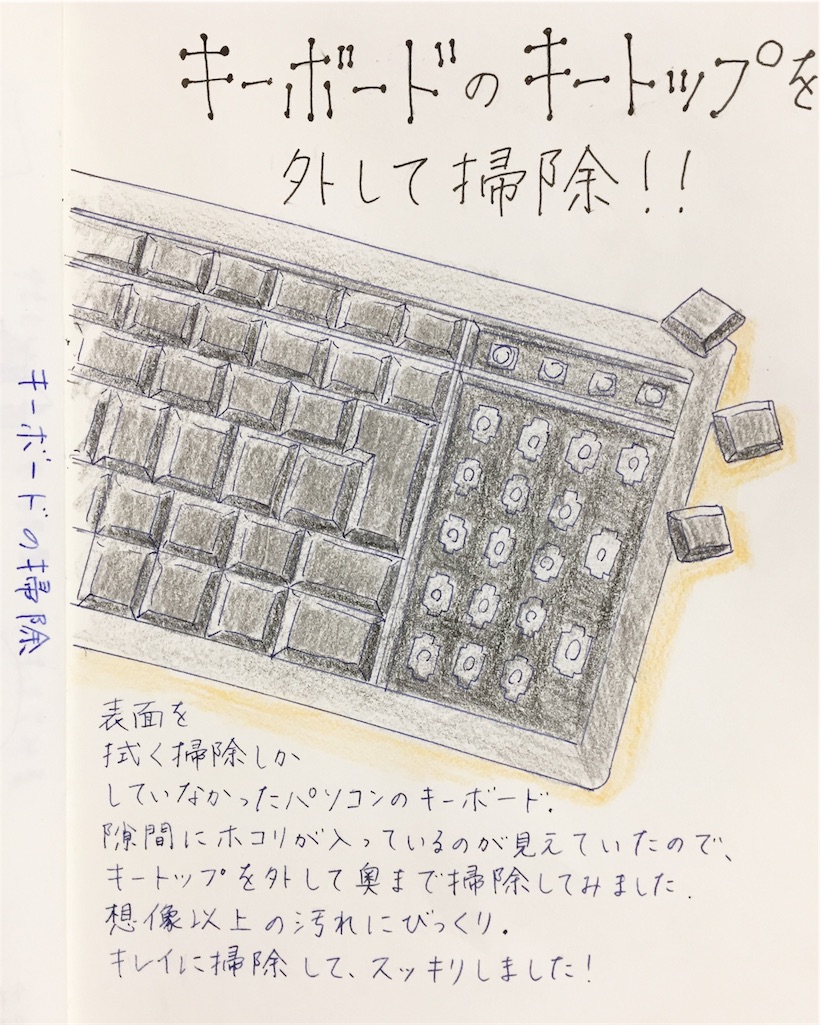 キーボードのキートップを
外して掃除!!
キーボードの掃除
表面を
拭く掃除しか
していなかったパソコンのキーボード.
隙間にホコリが入っているのが見えていたので、
キートップを外して奥まで掃除してみました.
想像以上の汚れにびっくり.
キレイに掃除して、スッキリしました!